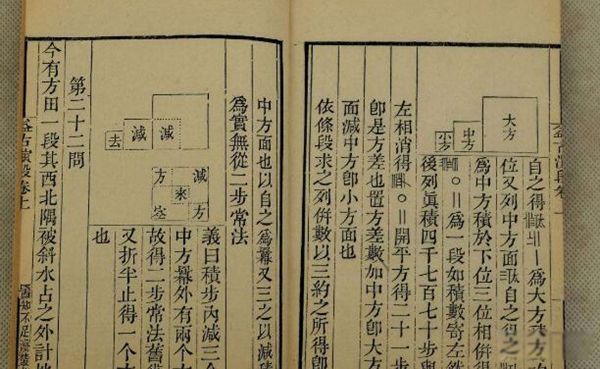 大方
中方
小方
自之得
為大方
位又列中方面
自之得
為中方積於下位三位相併得
〇〢為一段如積數寄左然
後列真積四千七百七十步與
左相消得
〇〢開平方得二十一步
即是方差也置方差數加中方即大方
面減中方即小方面也
依條段求之列併數以三約之所得即
中方面也以自之為冪又三之以減積
為實無從二步常法
減
減
去
減
方
來
方
義曰積步內減三个
中方冪外有兩个方
故得二步常法舊術
又折半止得一个方
也
第二十二問
今有方田一段其西北隅被斜水占之外計地
益古演段卷上